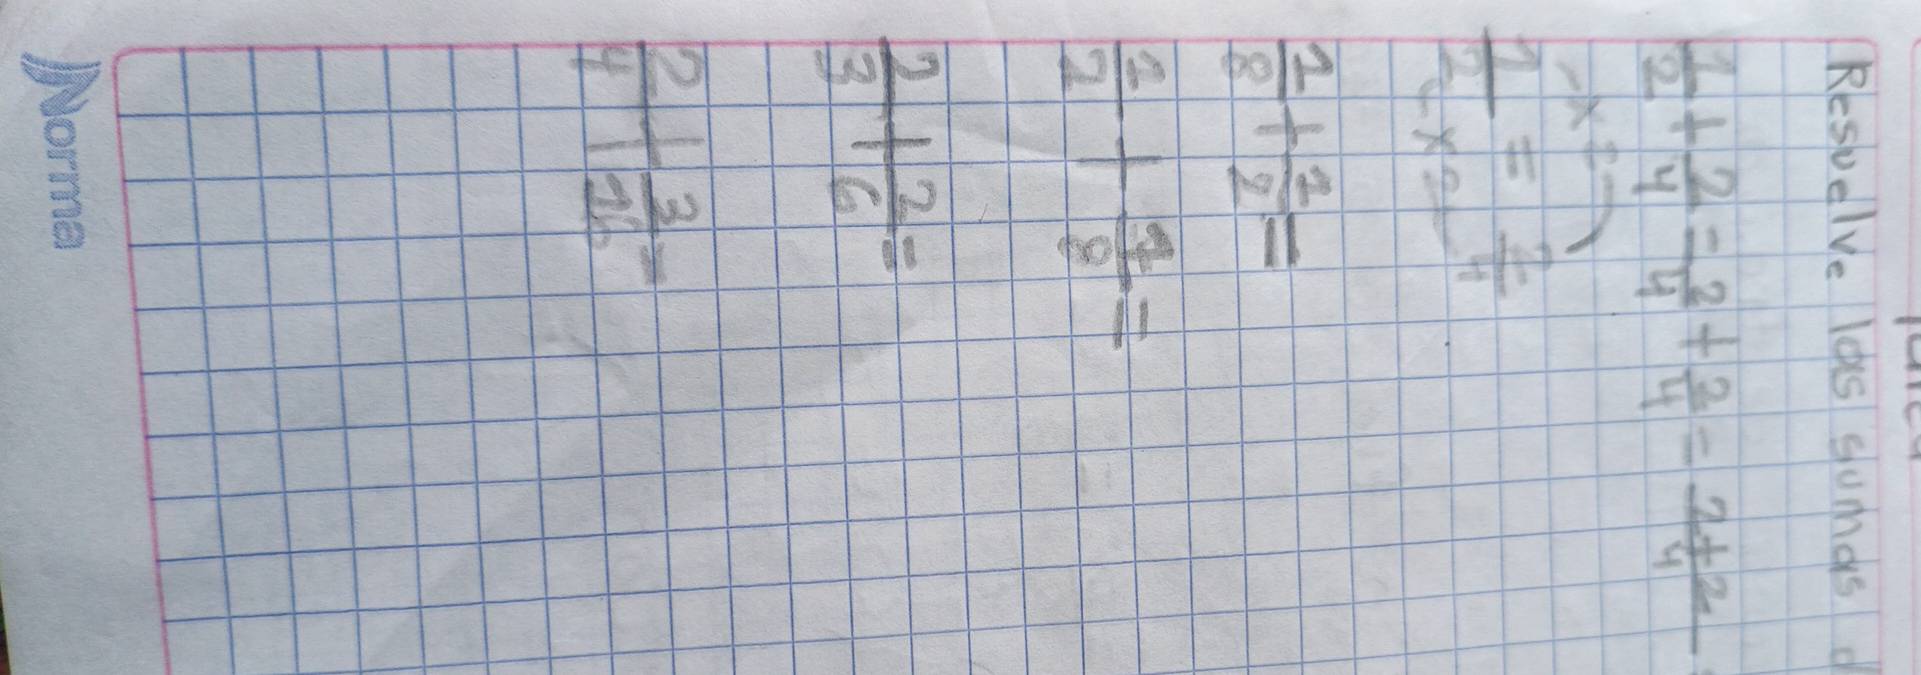 Resuelve las sumas d
1/2 + 2/4 = 2/4 + 2/4 = 2+2/4
x 2
1/2 = 2/4
x 2
1/8 + 1/2 =
1/2 + 1/8 =
2/3 + 2/6 =
2/4 + 3/16 =
Norma